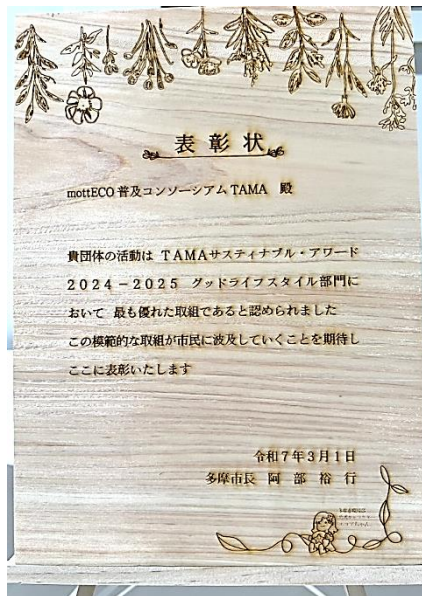 表彰状
mottECO普及コンソーシアムTAMA 殿
貴団体の活動は TAMAサスティナブル・アワード
2024-2025 グッドライフスタイル部門に
おいて 最も優れた取組であると認められました
この模範的な取組が市民に波及していくことを期待し
ここに表彰いたします
令和7年3月1日
多摩市長 阿部裕行